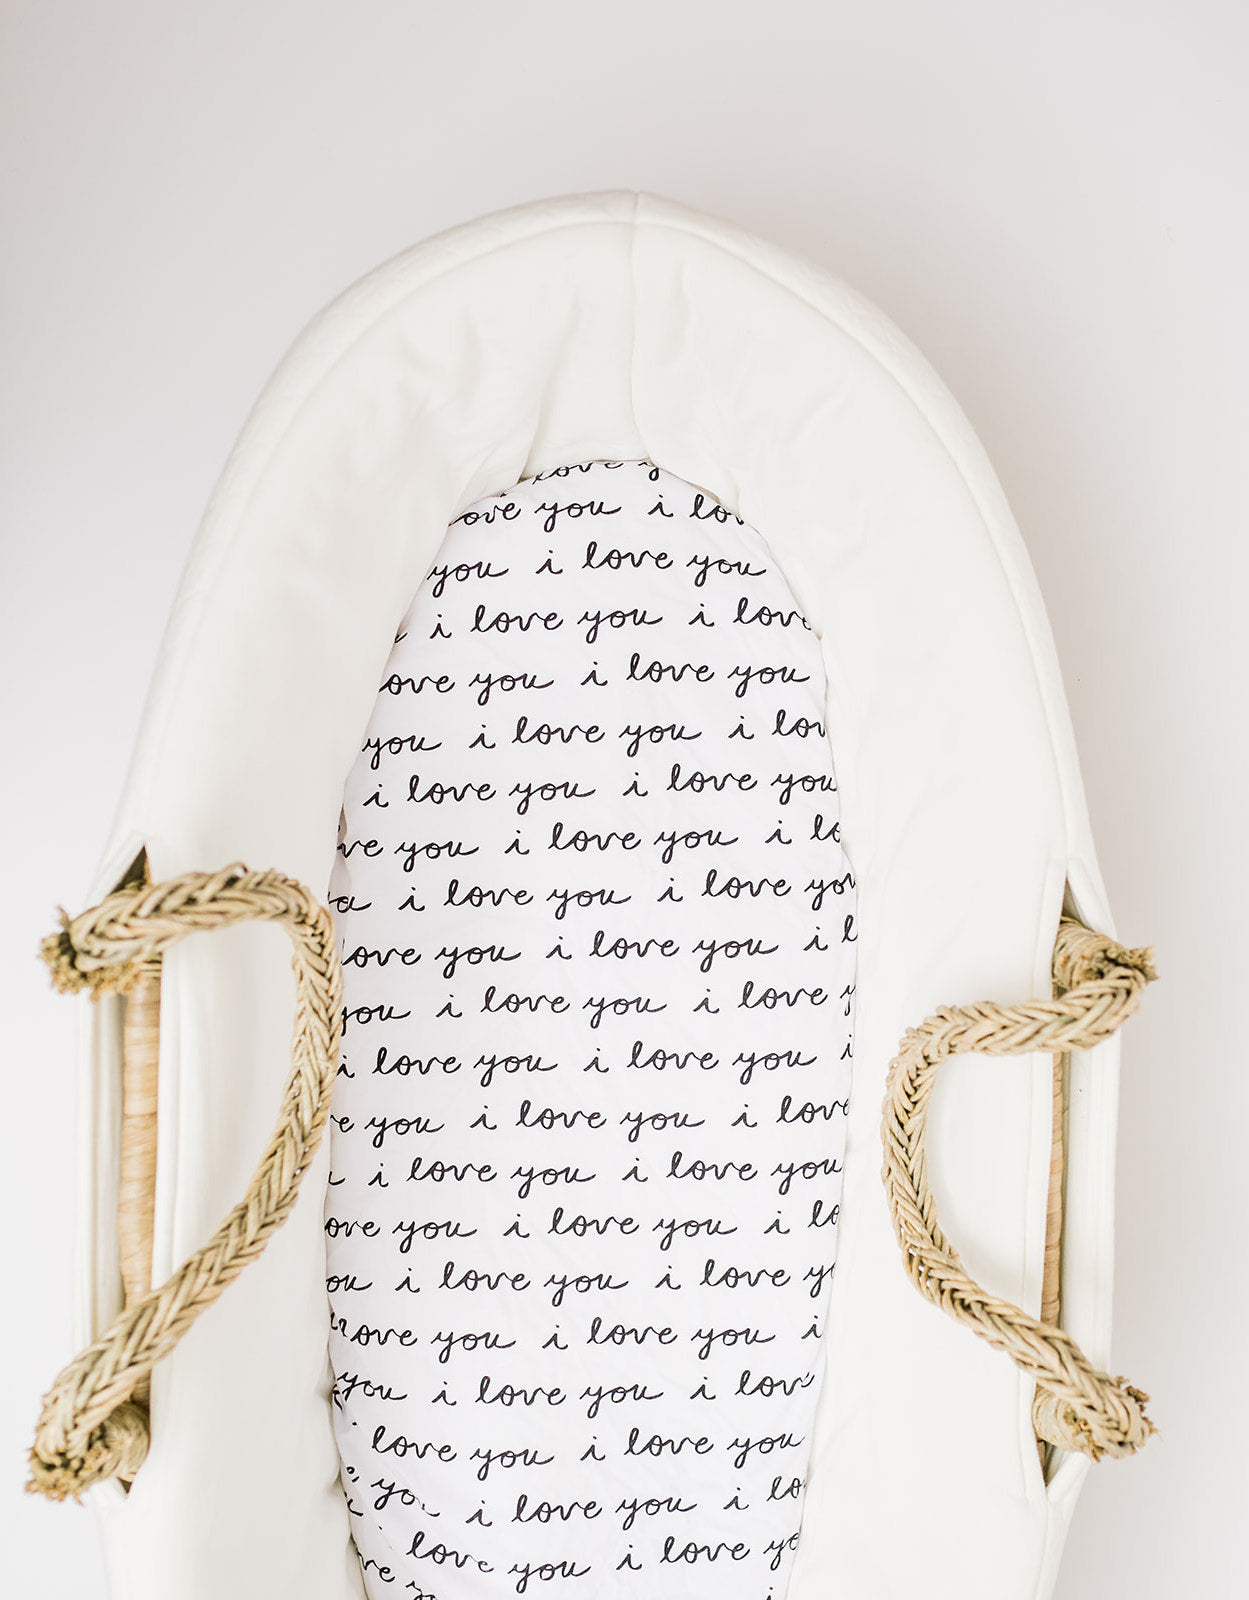 love y
love you i lov
you i love you
i love you i love
ove you i love you
you i love you i lov
i love you i love you
ve you i love you i lo
i love you i love you
love you i love you i l
you i love you i love y
i love you i love you i
e you i love you i love
i love you i love you
ove you i love you i lo
ou i love you i love y
ove you i love you i
you i love you i lov
love you i love you
yo i love you i lo
love you i love yo
ve y